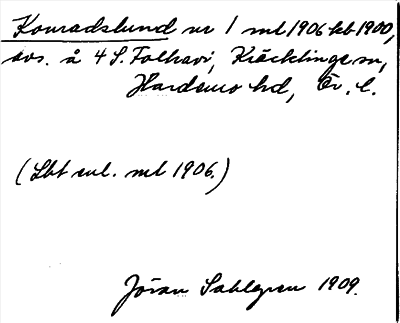 Konradslund nr 1 ml 1906 hb 1900,
avs. å 4 S. Folkavi, Kräcklinge sn,
Hardemo hd, Ör. l.
(Lht enl. ml 1906.)
Jöran Sahlgren 1909.